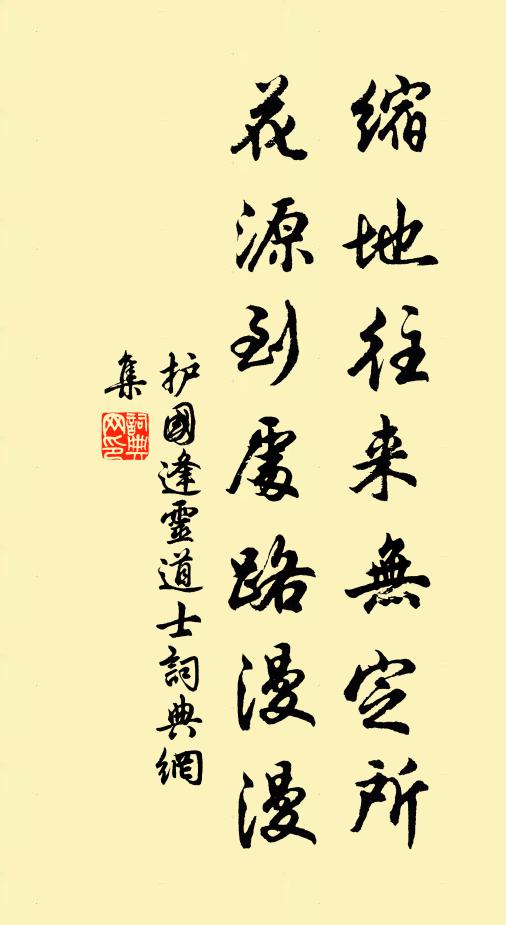 縮地往来無定所
花源到處路漫漫
护國逢靈道士詞典網
集
詞典
网印